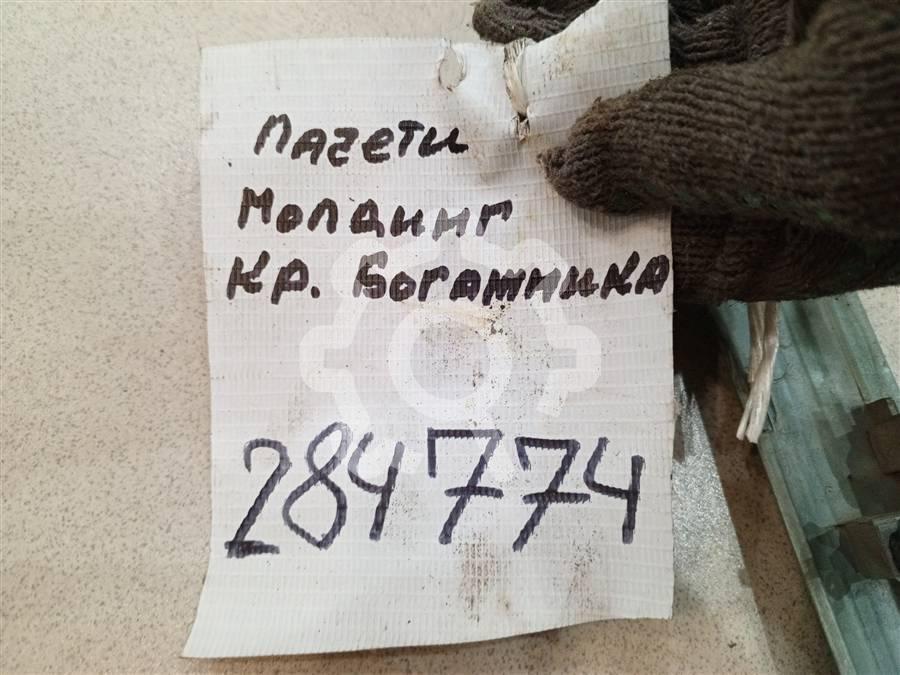 Лачети
Молдинг
Кр. Богатника
284774